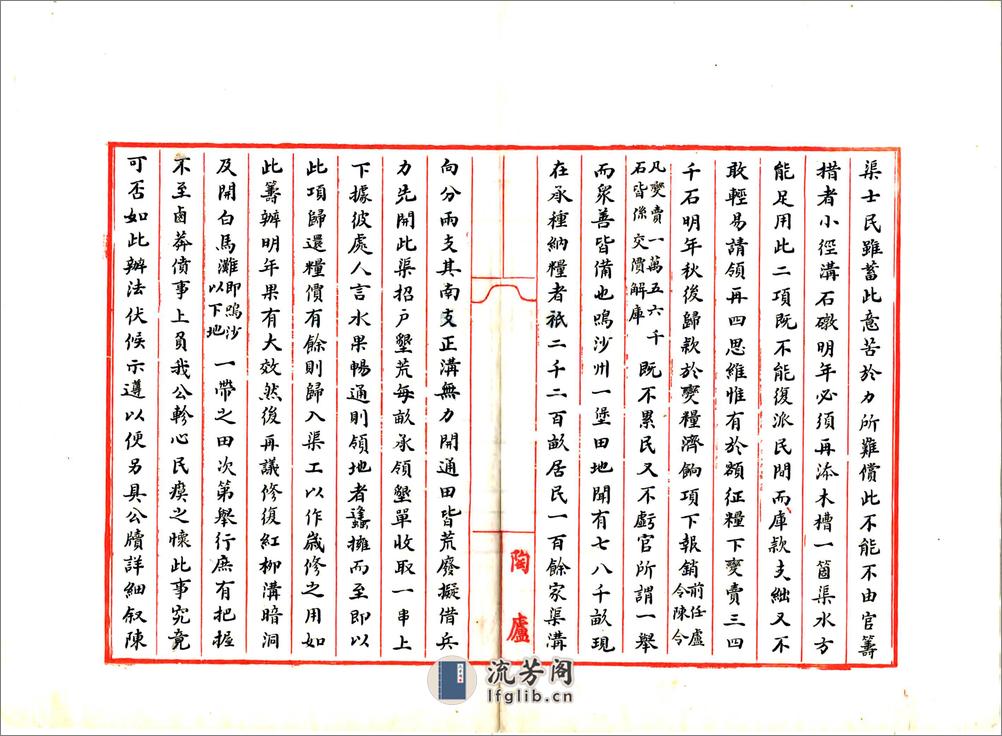 渠士民雖蓄此意苦於力所難償此不能不由官籌
措者小徑溝石礅明年必須再添木槽一箇渠水方
能足用此二項既不能復派民間而庫款支絀又不
敢輕易請領再四思維惟有於額征糧下變賣三四
千石明年秋後歸款於變糧濟餉項下報銷前任盧令陳令
凡變賣一萬五六千石皆係交價解庫既不累民又不虧官所謂一舉
而衆善皆備也鳴沙州一堡田地聞有七八千畝現
在承種納糧者祇二千二百畝居民一百餘家渠溝
陶廬
向分兩支其南支正溝無力開通田皆荒廢擬借兵
力先開此渠招戶墾荒每畝承領墾單收取一串上
下據彼處人言水果暢通則領地者蠭擁而至即以
此項歸還糧價有餘則歸入渠工以作歲修之用如
此籌辦明年果有大效然後再議修復紅柳溝暗洞
及開白馬灘即鳴沙以下地一帶之田次第舉行庶有把握
不至鹵莽僨事上員我公軫心民瘼之懷此事究竟
可否如此辦法伏候示遵以便另具公牘詳細叙陳
流芳阁
lfglib.cn